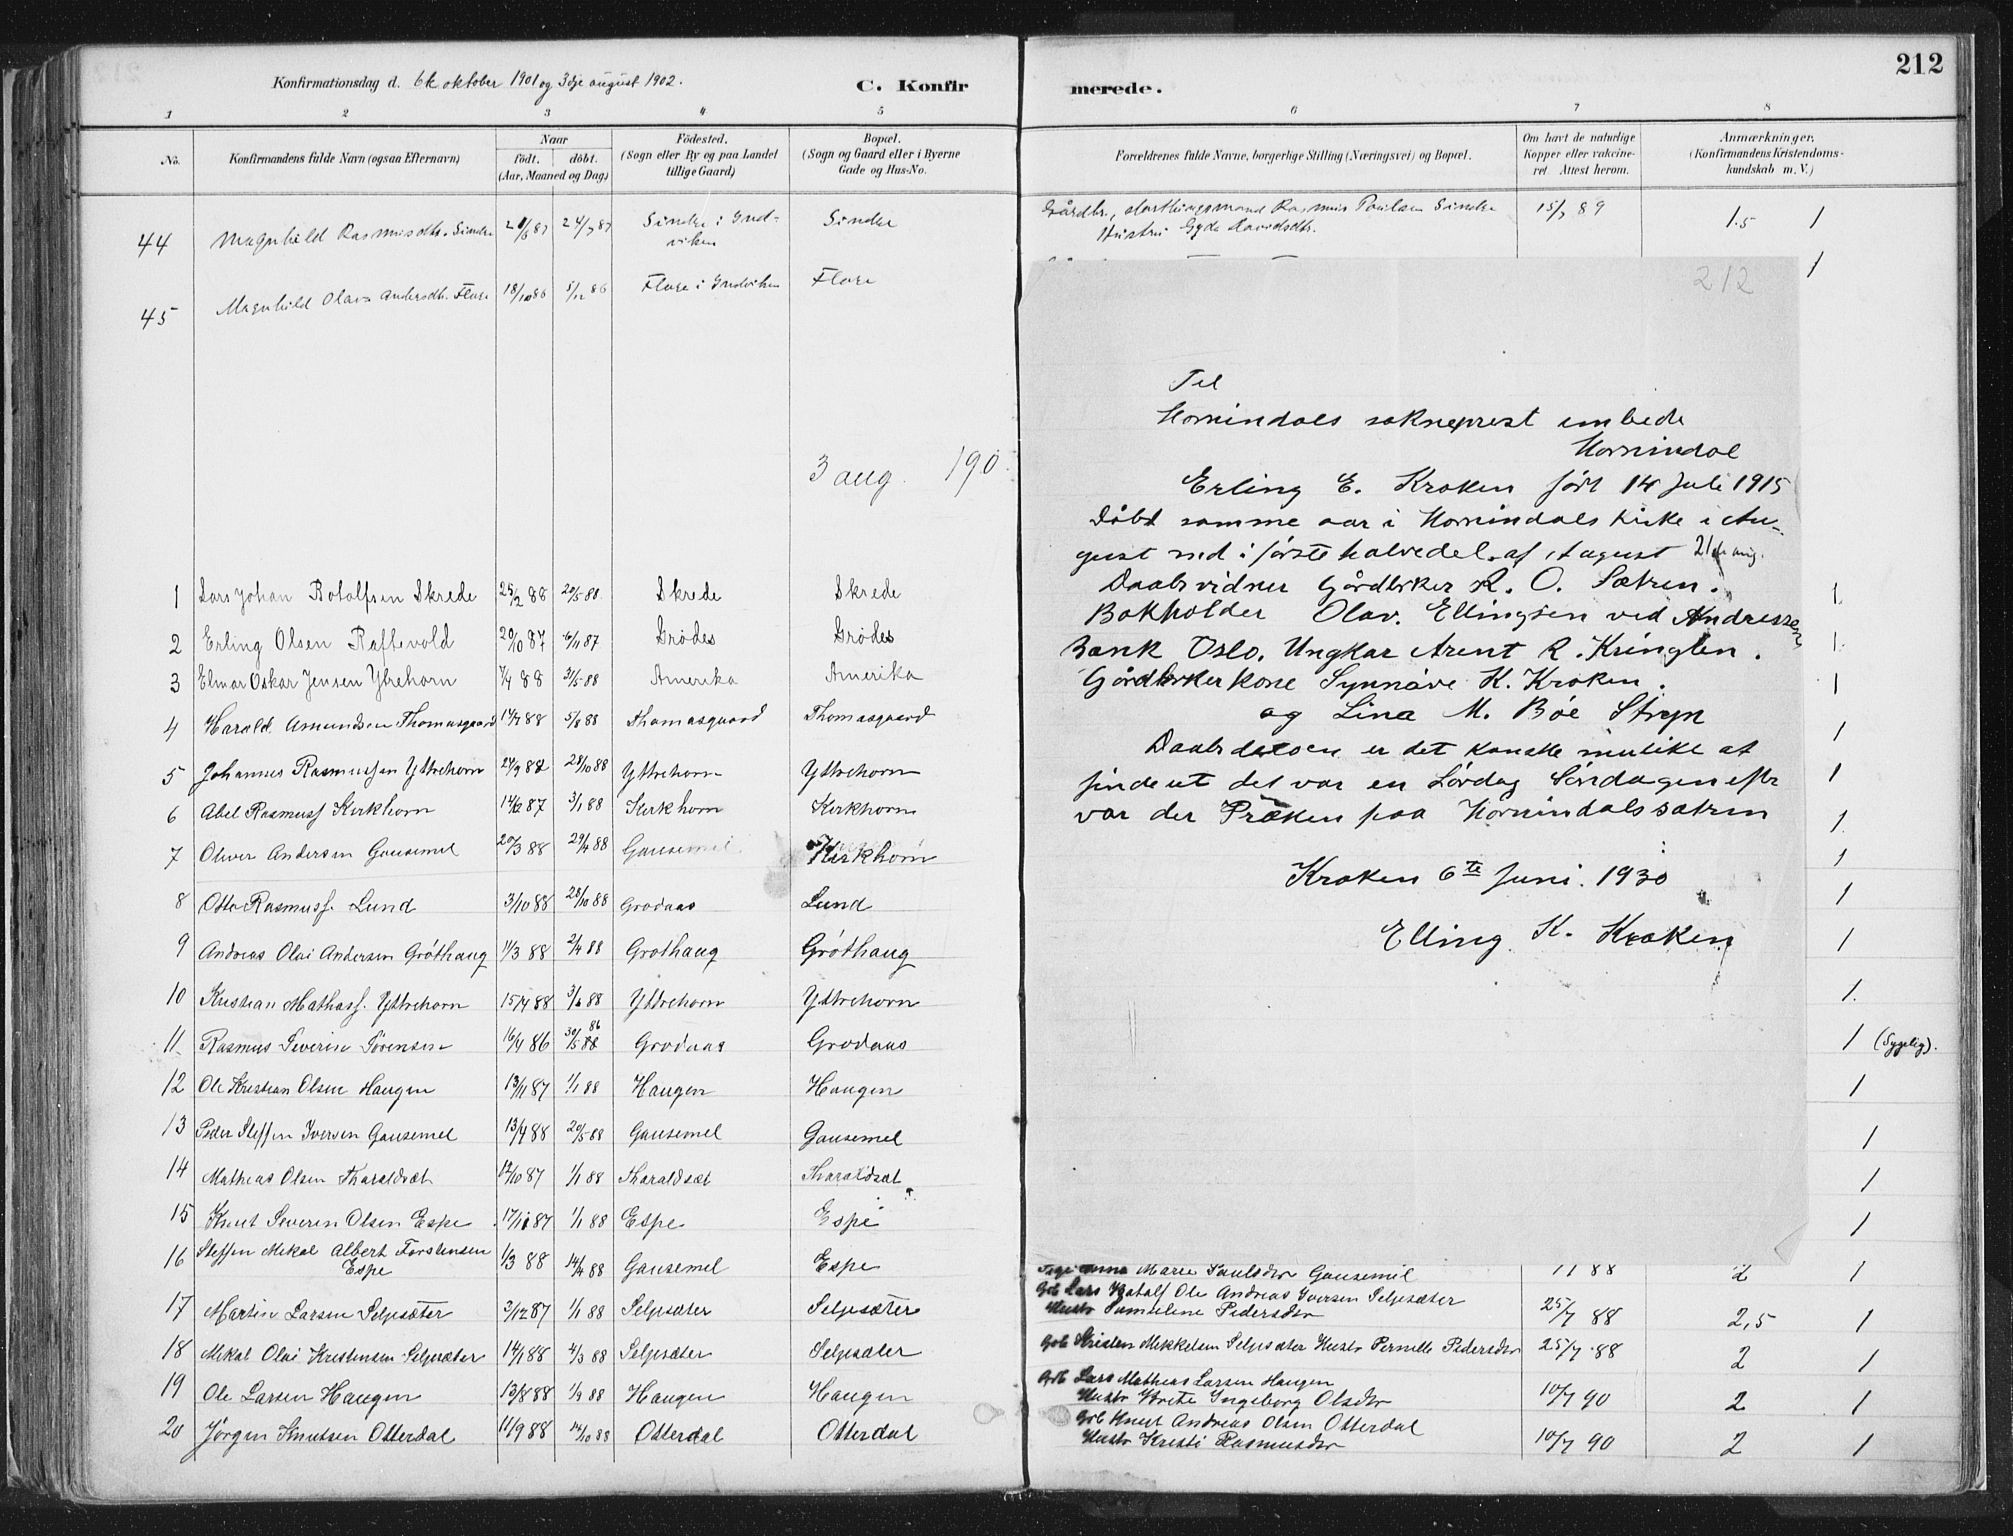 212
Konfirmationsdag d. 6te oktober 1901 og 3dje august 1902. C. Konfirmerede.
1 2 3 4 5 6 7 8
No. Konfirmandens fulde Navn (ogsaa Efternavn) Naar födt. döbt. (Aar, Maaned og Dag) Födested. (Sogn eller By og paa Landet tillige Gaard) Bopæl. (Sogn og Gaard eller i Byerne Gade og Hus-No. Forældrenes fulde Navne, borgerlige Stilling (Næringsvei) og Bopæl. Om havt de naturlige Kopper eller vakcineret. Attest herom. Anmærkninger, (Konfirmandens Kristendomskundskab m. V.)
44 Magnhild Rasmusdtr. Sindre 24/7 87 Sindre i Indviken Sindre Gårdbr., stortingsmand Rasmus Paulsen Sindre 15/7 89 1.5 1
Hustru Gyda Davidsdtr.
45 Magnhild Olava Andersdtr. Flore 18/10 86 5/12 86 Flore i Indviken Flore 1
3 aug. 190
1 Lars Johan Rotolfsen Skrede 25/2 88 20/5 88 Skrede Skrede 1.
2 Erling Olsen Raftevold 20/10 87 6/11 87 Grödes Grödes 1.
3 Elmar Oskar Jensen Ytrehorn 7/4 88 31/5 88 Amerika Amerika 1
4 Harald Amundsen Thomasgaard 14/7 88 5/8 88 Thomasgaard Thomasgaard 1
5 Johannes Rasmussen Yttrehorn 24/9 88 28/10 88 Yttrehorn Yttrehorn 1
6 Abel Rasmuss Kirkhorn 14/6 87 3/1 88 Kirkhorn Kirkhorn 1.
7 Oliver Andersen Gausemel 20/3 88 29/4 88 Gausemel Kirkhorn 1
8 Otto Rasmuss. Lund 3/10 88 28/10 88 Grodaas Lund 1
9 Andreas Olai Andersen Gróthaug 11/3 88 2/4 88 Grothaug Gróthaug 1
10 Kristian Mathiass. Yttrehorn 15/4 88 3/6 88 Yttrehorn Yttrehorn 1.
11. Rasmus Severin Sörensen 16/4 86 30/5 86 Grodaas Grodaas 1 (Sygelig).
12 Ole Kristian Olsen Haugen 13/11 87 1/1 88 Haugen Haugen 1
13 Peder Steffen Iversen Gausemel 13/4 88 20/5 88 Gausemel Gausemel 1
14 Mathias Olsen Tharaldsæt 12/10 87 1/1 88 Tharaldsæt Tharaldsæt 1
15 Knut Severin Olsen Espe 17/11 87 1/1 88 Espe Espe 1
16 Steffen Mikal Albert Torstensen Espe 1/3 88 14/4 88 Gausemel Espe Anna Marie Paulsdtr Gausemel 88 2 1
17 Martin Larsen Seljesæter 3/12 87 1/1 88 Seljesæter Seljesæter Gbr Lars Rotolf Ole Andreas Iversen Seljesæter 25/7 88 2,5 1
Hustr Samueline Pedersdtr
18 Mikal Olai Kristensen Seljesæter 14/1 88 4/3 88 Seljesæter Seljesæter Gbr Kristen Mikkelsen Seljesæter Hustr Pernille Pedersdtr 25/7 88 2 1
19 Ole Larsen Haugen 13/8 88 1/9 88 Haugen Haugen Gbr Lars Mathias Larsen Haugen 10/7 90 2 1
Hustr Brite Ingeborg Olsdtr
20 Jörgen Knutsen Otterdal 11/9 88 14/10 88 Otterdal Otterdal Gbr Knut Andreas Olsen Otterdal 10/7 90 2 1
Hustr Kristi Rasmusdtr
212
Til
Hornindals sokneprest embede
Hornindal
Erling E. Kroken fört 14 Juli 1915
Döbt samme aar i Hornindals kirke i August
sid i förste halvedel af August 21de aug.
Daabsvidner Gårdbrker R. O. Sætren.
Bokholder Olav. Ellingsen ved Andressens
Bank Oslo. Ungkar Arent R. Kringlen.
Gårdbrker kone Synnáve K. Kroken.
og Lina M. Böe Stryn
Daabsdatoen er det kanske mulike at
finde ut det var en Lördag Söndagen eftr
var der Præken paa Hornindalssætren
Kroken 6te Juni. 1930
Elling. K. Kroken